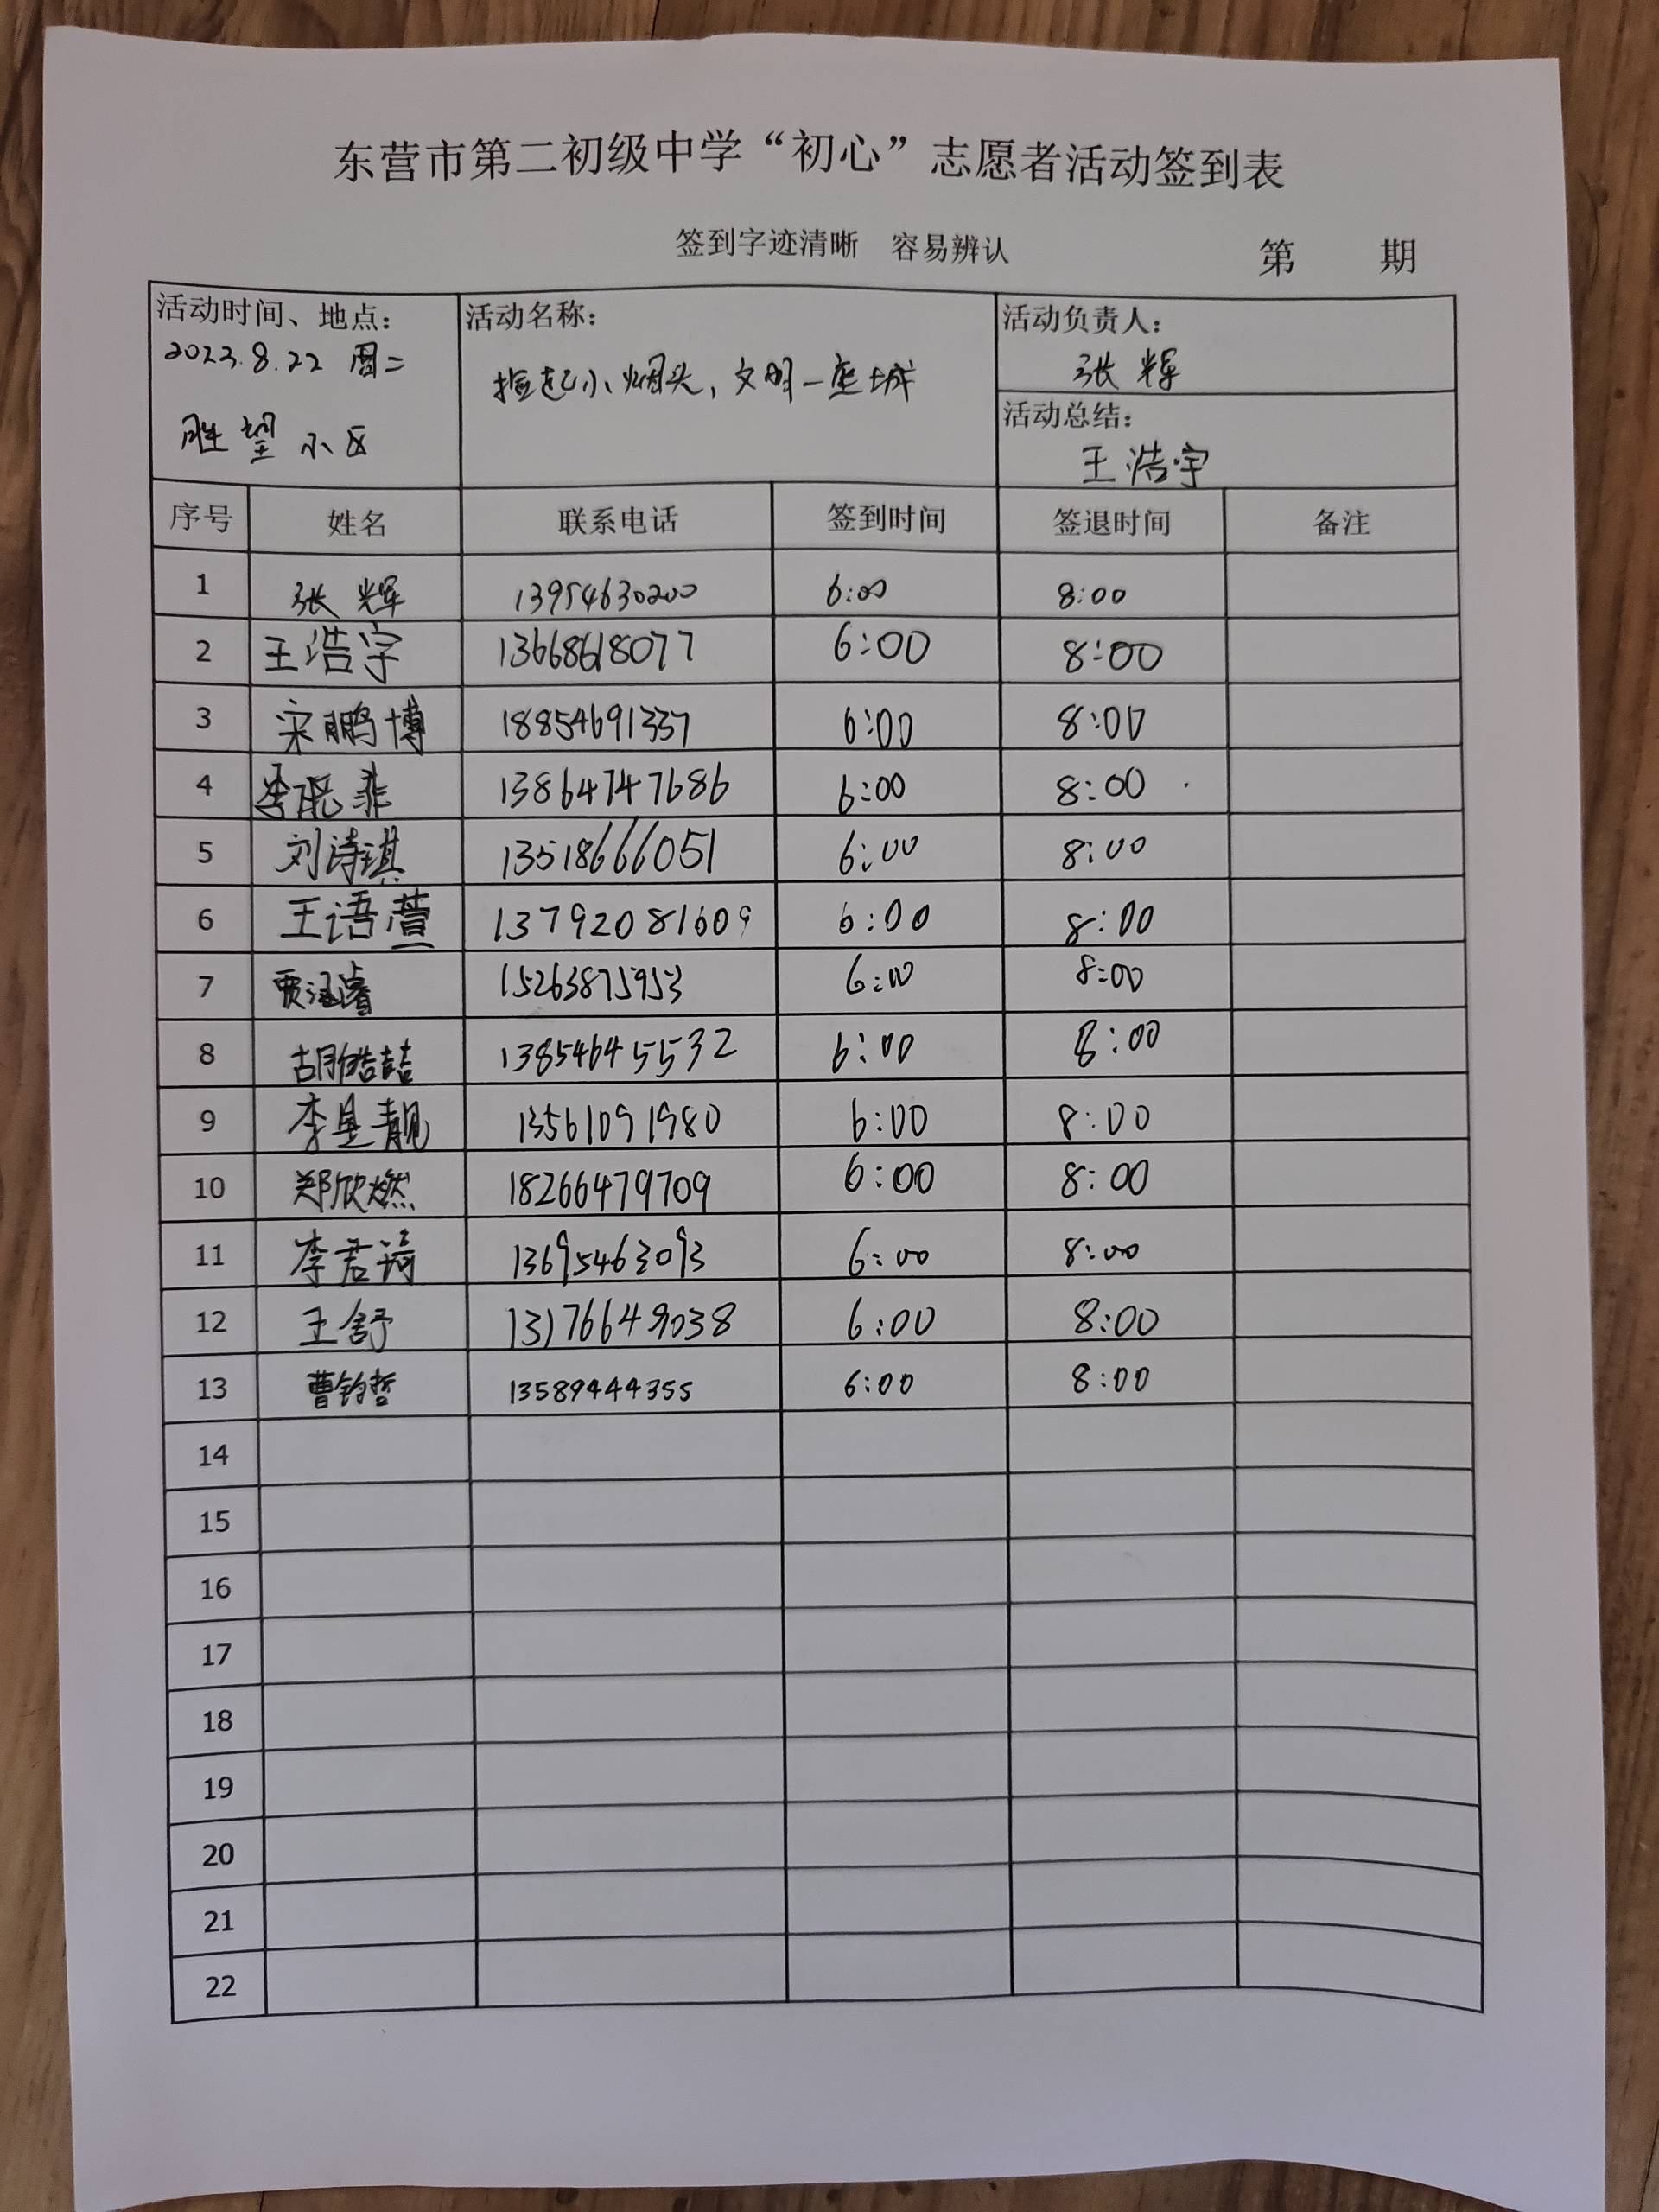 东营市第二初级中学“初心”志愿者活动签到表
签到字迹清晰 容易辨认
第 期
活动时间、地点：
2023.8.22 周二
胜望小区
活动名称：
捡起小烟头，文明一座城
活动负责人：
张辉
活动总结：
王浩宇
序号 姓名 联系电话 签到时间 签退时间 备注
1 张辉 13954630200 6:00 8:00
2 王浩宇 13668618077 6:00 8:00
3 宋鹏博 18854691337 6:00 8:00
4 13864747686 6:00 8:00
5 刘诗琪 13518666051 6:00 8:00
6 王语萱 13792081609 6:00 8:00
7 贾涵睿 15263875953 6:00 8:00
8 胡皓喆 13854645532 6:00 8:00
9 李星靓 13561091980 6:00 8:00
10 郑欣燃 18266479709 6:00 8:00
11 李君琦 13695463093 6:00 8:00
12 王舒 13176649038 6:00 8:00
13 曹钧哲 13589444355 6:00 8:00
14
15
16
17
18
19
20
21
22